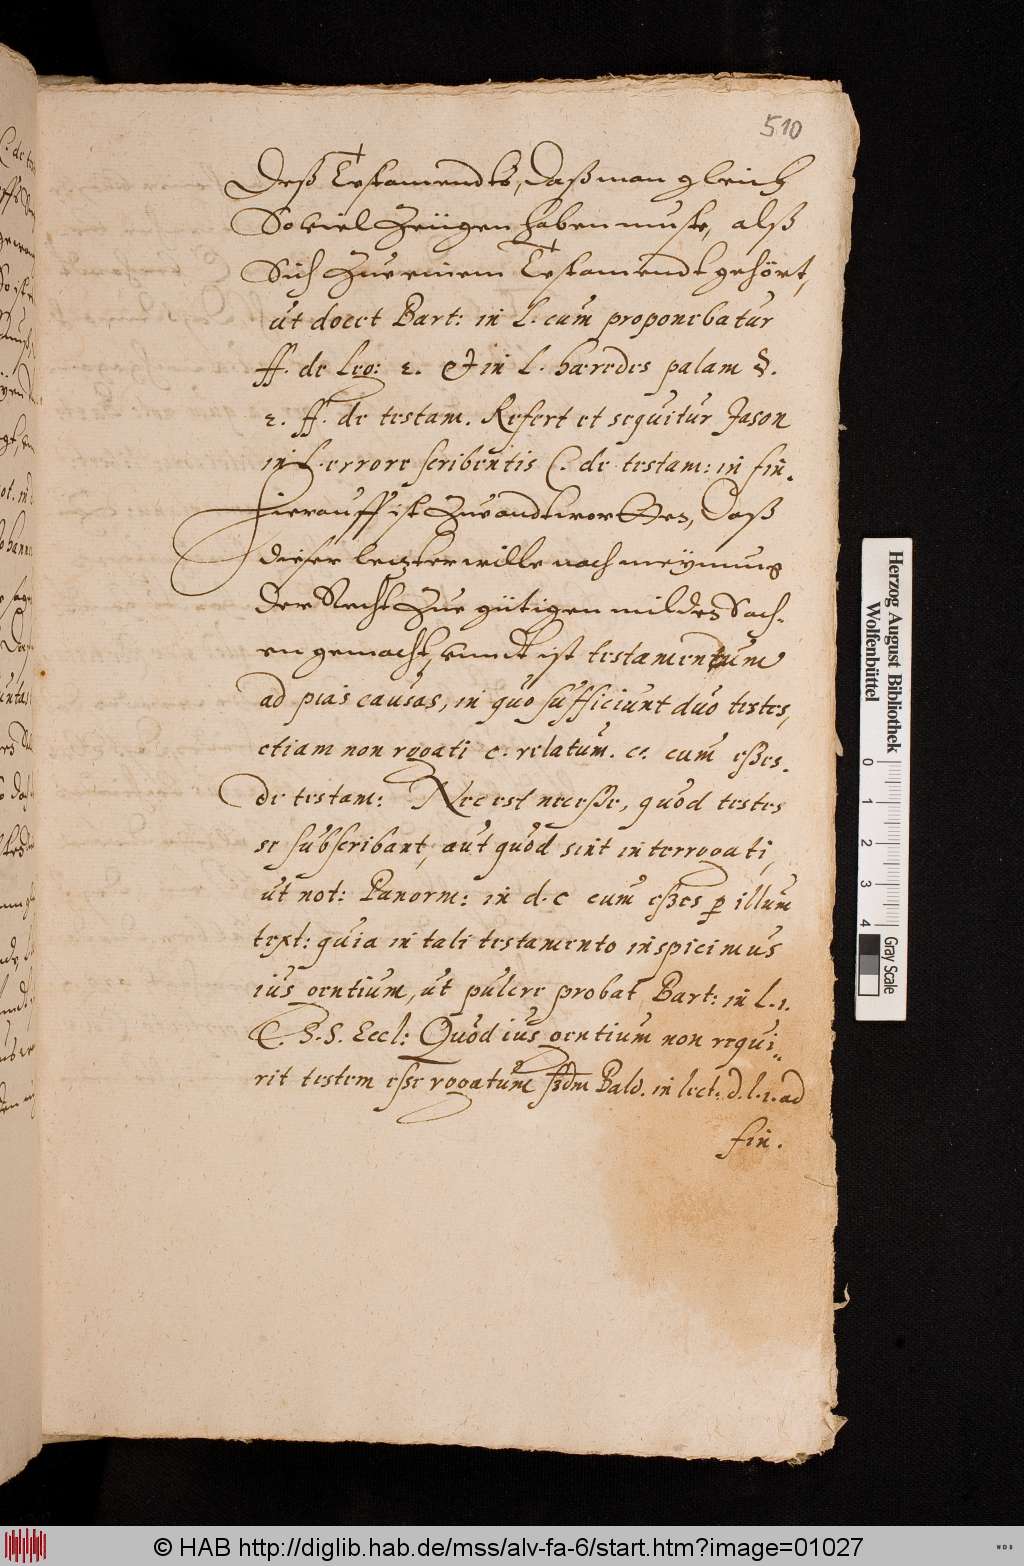 510
Deß Testamendts, Daß man gleich
So viel Zeügen haben muste, alß
Sich Zue einem Testamendt gehört,
ut docet Bart: in l. cum proponebatur
ff. de leg: 2. et in l. hæredes palam §.
2. ff. de testam. Refert et sequitur Jason
in l. errore scribentis C. de testam: in fin.
Hierauff ist Zue andtwortten, Daß
dieser letzter wille nach meÿnung
Der Recht Zue gütigen milden Sach-
en gemacht, unndt ist testamentum
ad pias causas, in quo sufficiunt duo testes,
etiam non rogati c. relatum. c. cum eßes.
de testam: Nec est neceße, quod testes
se subscribant, aut quod sint interrogati,
ut not: Panorm: in d. c cum eßes p illum
text: quia in tali testamento inspicimus
ius gentium, ut pulcre probat Bart: in l. 1.
C. S. S. Eccl: Quod ius gentium non requi-
rit testem eße rogatum sdm Bald. in lect: d. l. 1. ad
fin.
Herzog August Bibliothek
Wolfenbüttel
0 1 2 3 4
Gray Scale
© HAB http://diglib.hab.de/mss/alv-fa-6/start.htm?image=01027